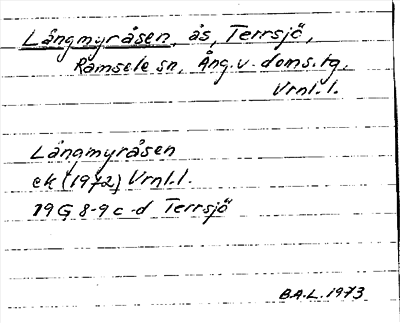 Långmyråsen, ås, Terrsjö,
Ramsele sn, Ång. v. doms. tg.
Vrnl. l.
Långmyråsen
ek (1972) Vrnl. l.
19G 8-9 c-d Terrsjö
B.A.L. 1973